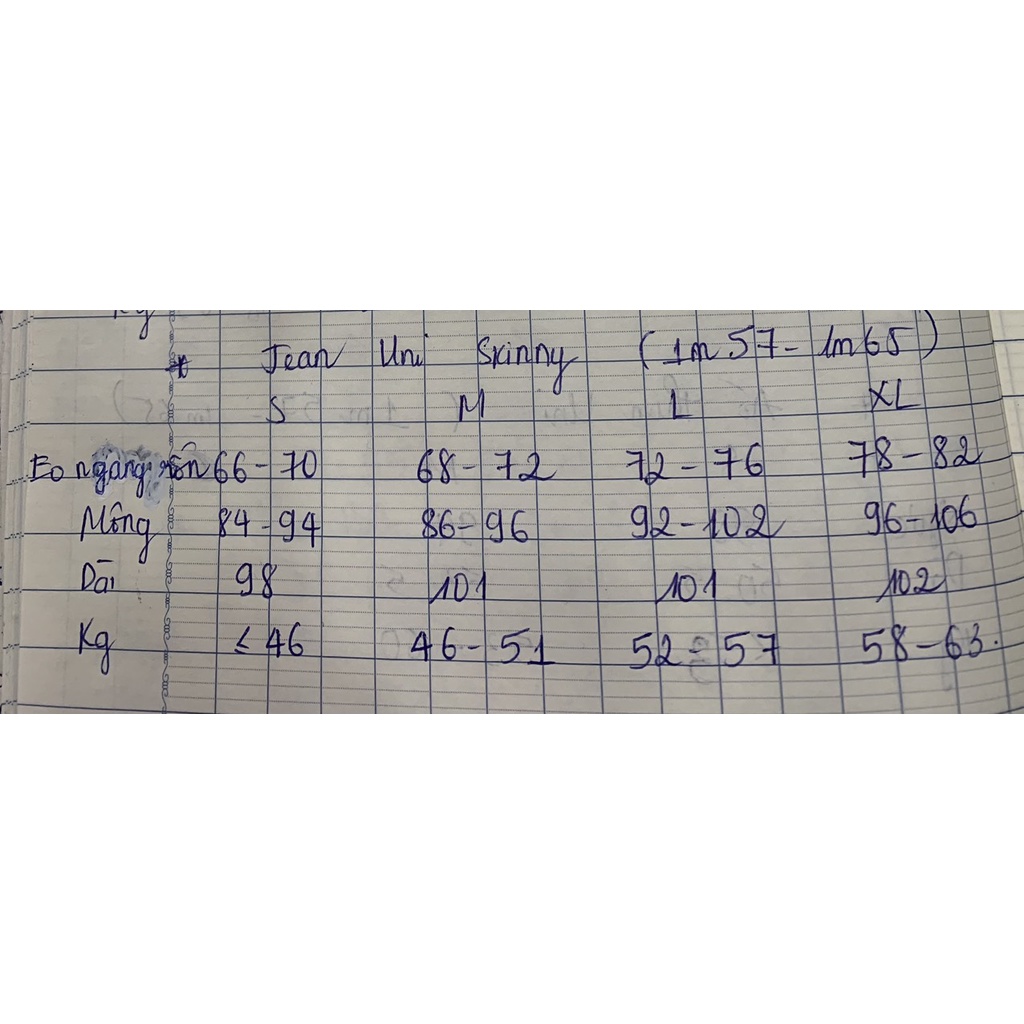 * Jean Uni Skinny (1m57 - 1m65)
S M L XL
Eo ngang rốn 66 - 70 68 - 72 72 - 76 78 - 82
Mông 84 - 94 86 - 96 92 - 102 96 - 106
Dài 98 101 101 102
Kg ≤ 46 46 - 51 52 - 57 58 - 63.